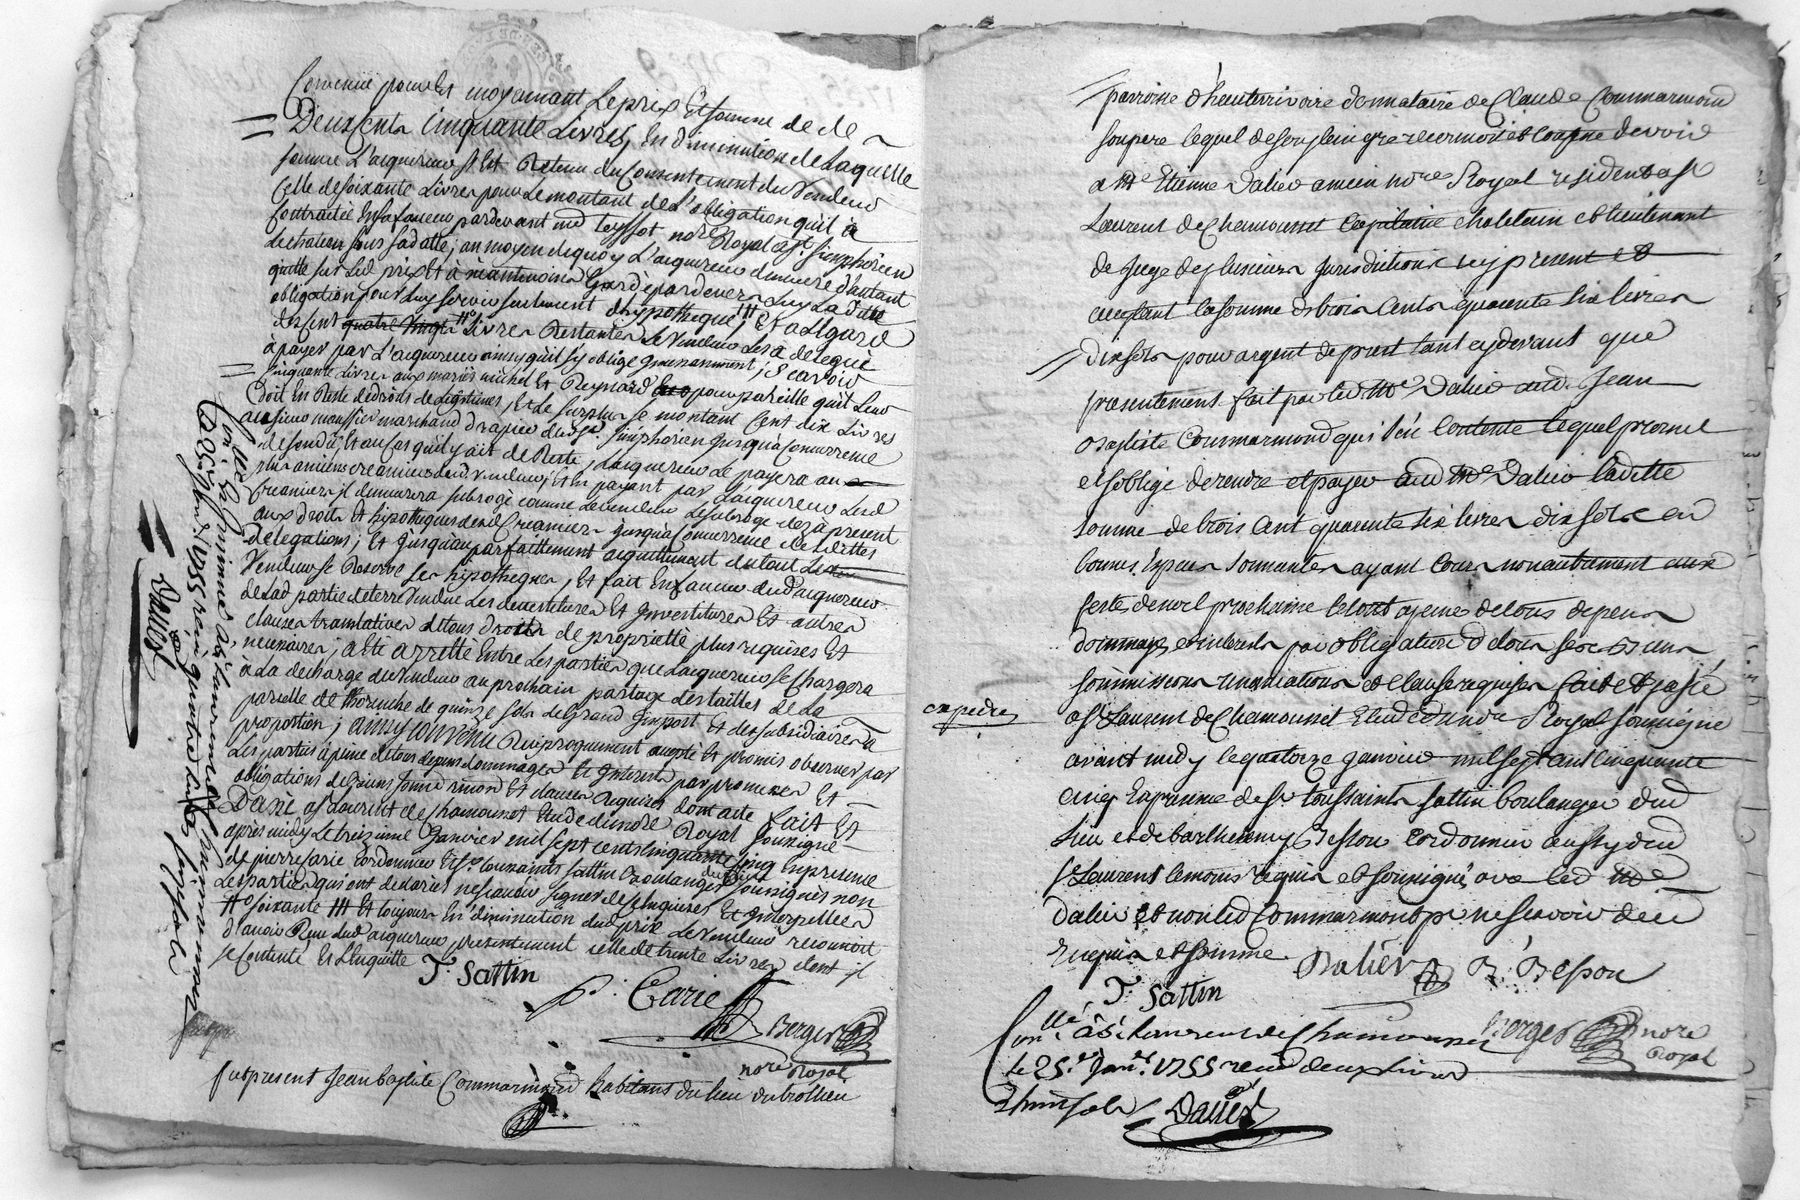 Convenu pour Et moyenant Le prix Et somme de de
Deux cents Cinquante Livres, En diminution de Laquelle
somme L'aquereur s'Est Retenu du Consentement du Vendeur
Celle de soixante Livres pour Le montant de L'obligation qu'il à
Contractée En sa faveur pardevant me teyssot nore Royal a st simphorien
Lechateau sous sa datte, au moyen de quoy L'aquereur demeure d'autant
quitte sur Led prix Et à maintenir Gardé pardevers Luy La ditte
obligation pour Luy servir seulement d'hypotheque ; Et a L'Egard
des Cent quatre vingt Livres Restantes Le Vendeur Les a delegué
à payer par L'aquereur ainsy qu'il s'y oblige ; scavoir
Cinquante Livres aux mariés michel Et Reynard pour pareille qu'il Leur
doit En Reste de droits de Legitimes, Et Le surplus se montant Cent dix Livres
au sieur moussier marchand drapier dud st simphorien jusqu'a Concurrence
de son dû, Et au Cas qu'il y ait de Reste, L'aquereur Le payera aux
plus anciens creanciers dud vendeur, Et En payant par L'aquereur Lesd
Creanciers il demeurera subrogé comme Le vendeur Le subroge des a present
aux droits Et hypotheques desd Creanciers jusqu'a Concurrence desdittes
delegations ; Et jusqu'au parfaittement aquittement du tout Le
Vendeur se Reserve ses hypotheques, Et fait En faveur dud aquereur
de Lad partie de terre Vendue Les devestitures Et Investitures Et autres
clauses translatives de tous droits de proprietté plus requises Et
necessaires ; a été arretté Entre Les parties que L'aquereur se Chargera
à La decharge du Vendeur au prochain partage des tailles de La
parcelle de de quinze sols de Grand Import Et des subsidiaires à
proportion ; ainsy Convenu Reciproquement accepté Et promis observer par
Les parties à peine de tous depens dommages Et Interets par promesses Et
obligations de biens soumis. renon. Et clauses Requises dont acte fait Et
Passé a st Laurent de chamousset Etude de nore Royal soussigné
après midy Le treizieme Janvier mil sept cents Cinquante Cinq En presence
de pierre Carie Cordonnier Et sr toussaints sattin Boulanger soussignés non
Les parties qui ont declaré ne scavoir signer de ce Enquises Et Interpellées
soixante Et toujours En diminution dud prix Le Vendeur reconnoit
d'avoir Reçu dud aquereur presentement celle de trente Livres dont il
se Contente Et L'En quitte T: Sattin
P: Carie
Berger
nore Royal
fut present Jean baptiste Commarmond habitant du lieu du trolieu
Controllé à st Laurent de Chamousset
Le 25e Janv. 1755 reçu quarante six sols
Dalier
parroisse d'hauterivoire donnataire de Claude Commarmond
son pere lequel de son plein gré reconnoit et confesse devoir
a Me Etienne Dalier ancien nore Royal resident a st
Laurent de Chamousset Capitaine chatelain et lieutenant
de juge de plusieurs jurisdictions icy present et
acceptant la somme de trois cents quarente six livres
dix sols pour argent de prest tant cy devant que
presentement fait par led Me Dalier aud. Jean
Baptiste Commarmond qui s'en contente lequel promet
et s'oblige de rendre et payer aud Me Dalier laditte
somme de trois cent quarente six livres dix sols en
bonnes Especes sonnantes ayant cours non autrement aux
festes de noel prochaine le tout a peine de tous depens
dommages et interests par obligation de tous ses biens
soumissions renonciations et clauses requises fait et passé
a st Laurent de Chamousset Etude du nore Royal soussigné
expediée
avant midy le quatorze janvier mil sept cent cinquante
cinq En presence de sr toussaints sattin boulanger dud
lieu et de barthelemy Besson cordonnier aussy dud
st Laurent temoins requis et soussignés avec led Me
Dalier et non led Commarmond pour ne scavoir de ce
enquis et sommé Dalier B: Besson
T: Sattin
Berger nore
Royal
Conllé à st Laurent de Chamousset
le 25e Janv. 1755 reçu deux livres
huit sols Dalier